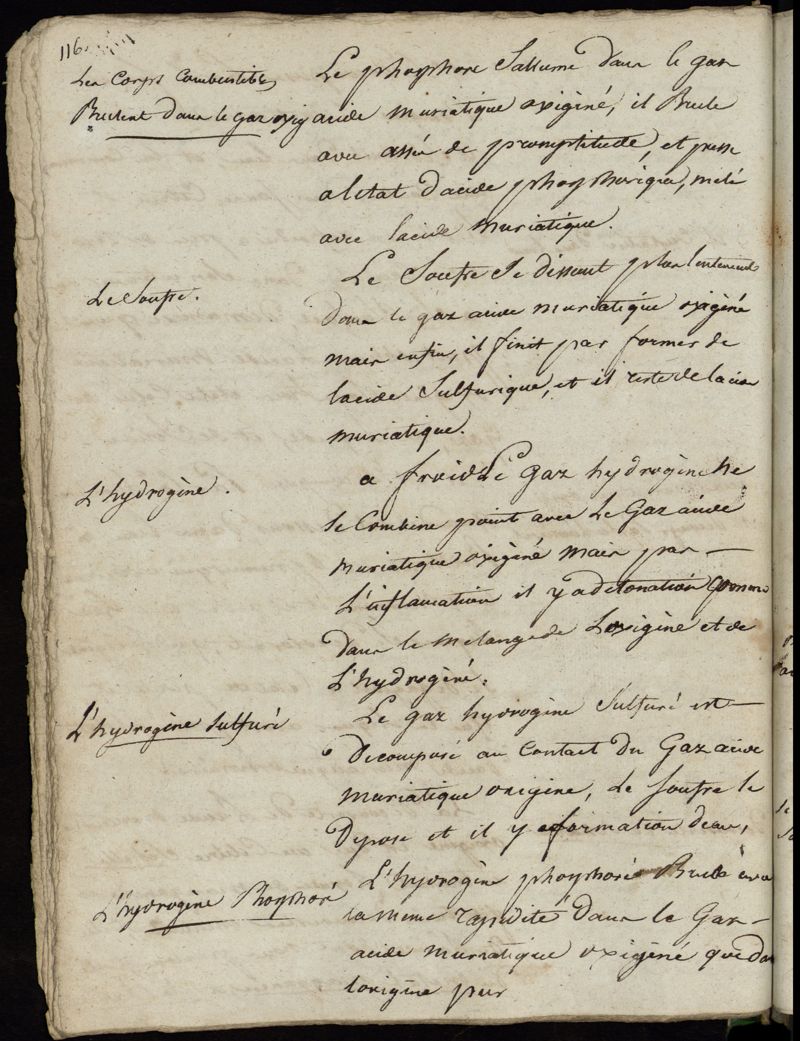 116.
Les Corps Combustibles
Brulent dans le gaz oxig
Le phosphore Sallume dans le gaz
acide muriatique oxigéné, il Brule
avec assés de promptitude, et passe
a letat d'acide phosphorique, melé
avec lacide muriatique.
Le Soufre.
Le Soufre Se dissout plus lentement
dans le gaz acide muriatique oxigéné
mais enfin, il finit par former de
lacide Sulfurique, et il reste de lacide
muriatique.
L'hydrogène.
a froid Le gaz hydrogène ne
se Combine point avec Le Gaz acide
muriatique oxigéné mais par
L'inflamation il y a detonation Comme
dans le melange de Loxigène et de
L'hydrogéné.
L'hydrogène Sulfuré
Le gaz hydrogène Sulfuré est
Decomposé au Contact du Gaz acide
muriatique oxigéné, Le Soufre Se
Depose et il y a formation deau,
L'hydrogène Phosphoré
L'hydrogène phosphoré Brule avec
la même rapidité dans le Gaz
acide muriatique oxigéné que dans
loxigène pur